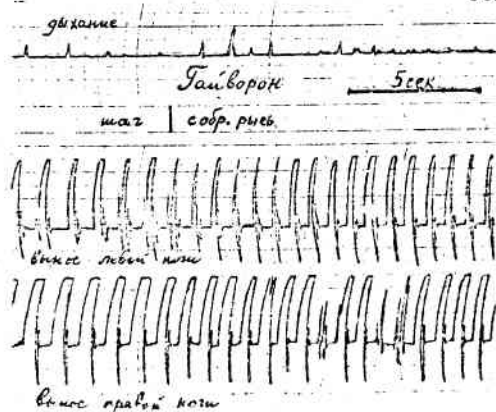 дыхание
Гайворон 5 сек
шаг собр. рысь
вынос левой ноги
вынос правой ноги